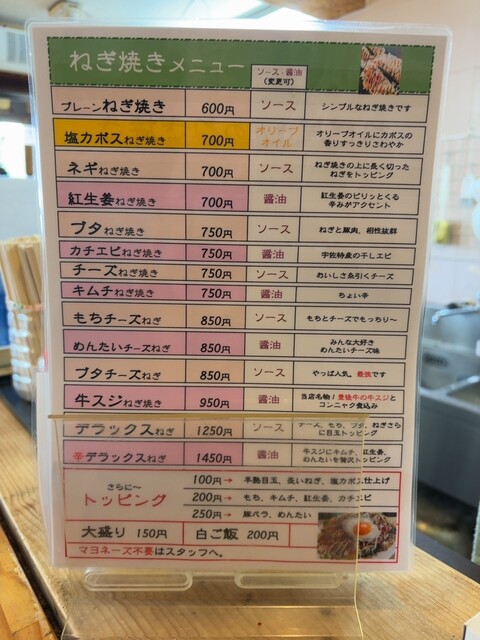 ねぎ焼きメニュー
ソース・醤油
(変更可)
プレーンねぎ焼き 600円 ソース シンプルなねぎ焼きです
塩カボスねぎ焼き 700円 オリーブ
オイル オリーブオイルにカボスの
香りすっきりさわやか
ネギねぎ焼き 700円 ソース ねぎ焼きの上に長く切った
ねぎをトッピング
紅生姜ねぎ焼き 700円 醤油 紅生姜のピリッとくる
辛みがアクセント
ブタねぎ焼き 750円 ソース ねぎと豚肉、相性抜群
カチエビねぎ焼き 750円 醤油 宇佐特産の干しエビ
チーズねぎ焼き 750円 ソース おいしさ糸引くチーズ
キムチねぎ焼き 750円 醤油 ちょい辛
もちチーズねぎ 850円 ソース もちとチーズでもっちり〜
めんたいチーズねぎ 850円 醤油 みんな大好き
めんたいチーズ味
ブタチーズねぎ 850円 ソース やっぱ人気。最強です
牛スジねぎ焼き 950円 醤油 当店名物!豊後牛の牛スジと
コンニャク煮込み
デラックスねぎ 1250円 ソース チーズ、もち、ブタ、ねぎさら
に目玉トッピング
辛デラックスねぎ 1450円 醤油 牛スジにキムチ、紅生姜、
めんたいを贅沢トッピング
さらに〜
トッピング
100円→ 半熟目玉、長いねぎ、塩カボス仕上げ
200円→ もち、キムチ、紅生姜、カチエビ
250円→ 豚バラ、めんたい
大盛り 150円 白ご飯 200円
マヨネーズ不要はスタッフへ。